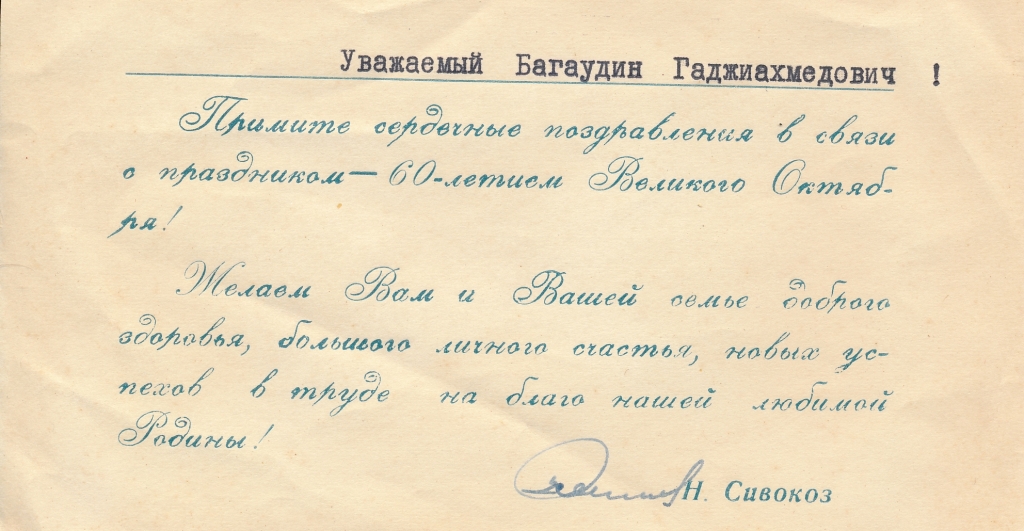 Уважаемый Багаудин Гаджиахмедович !
Примите сердечные поздравления в связи
с праздником — 60-летием Великого Октяб-
ря!
Желаем Вам и Вашей семье доброго
здоровья, большого личного счастья, новых ус-
пехов в труде на благо нашей любимой
Родины!
Н. Сивокоз